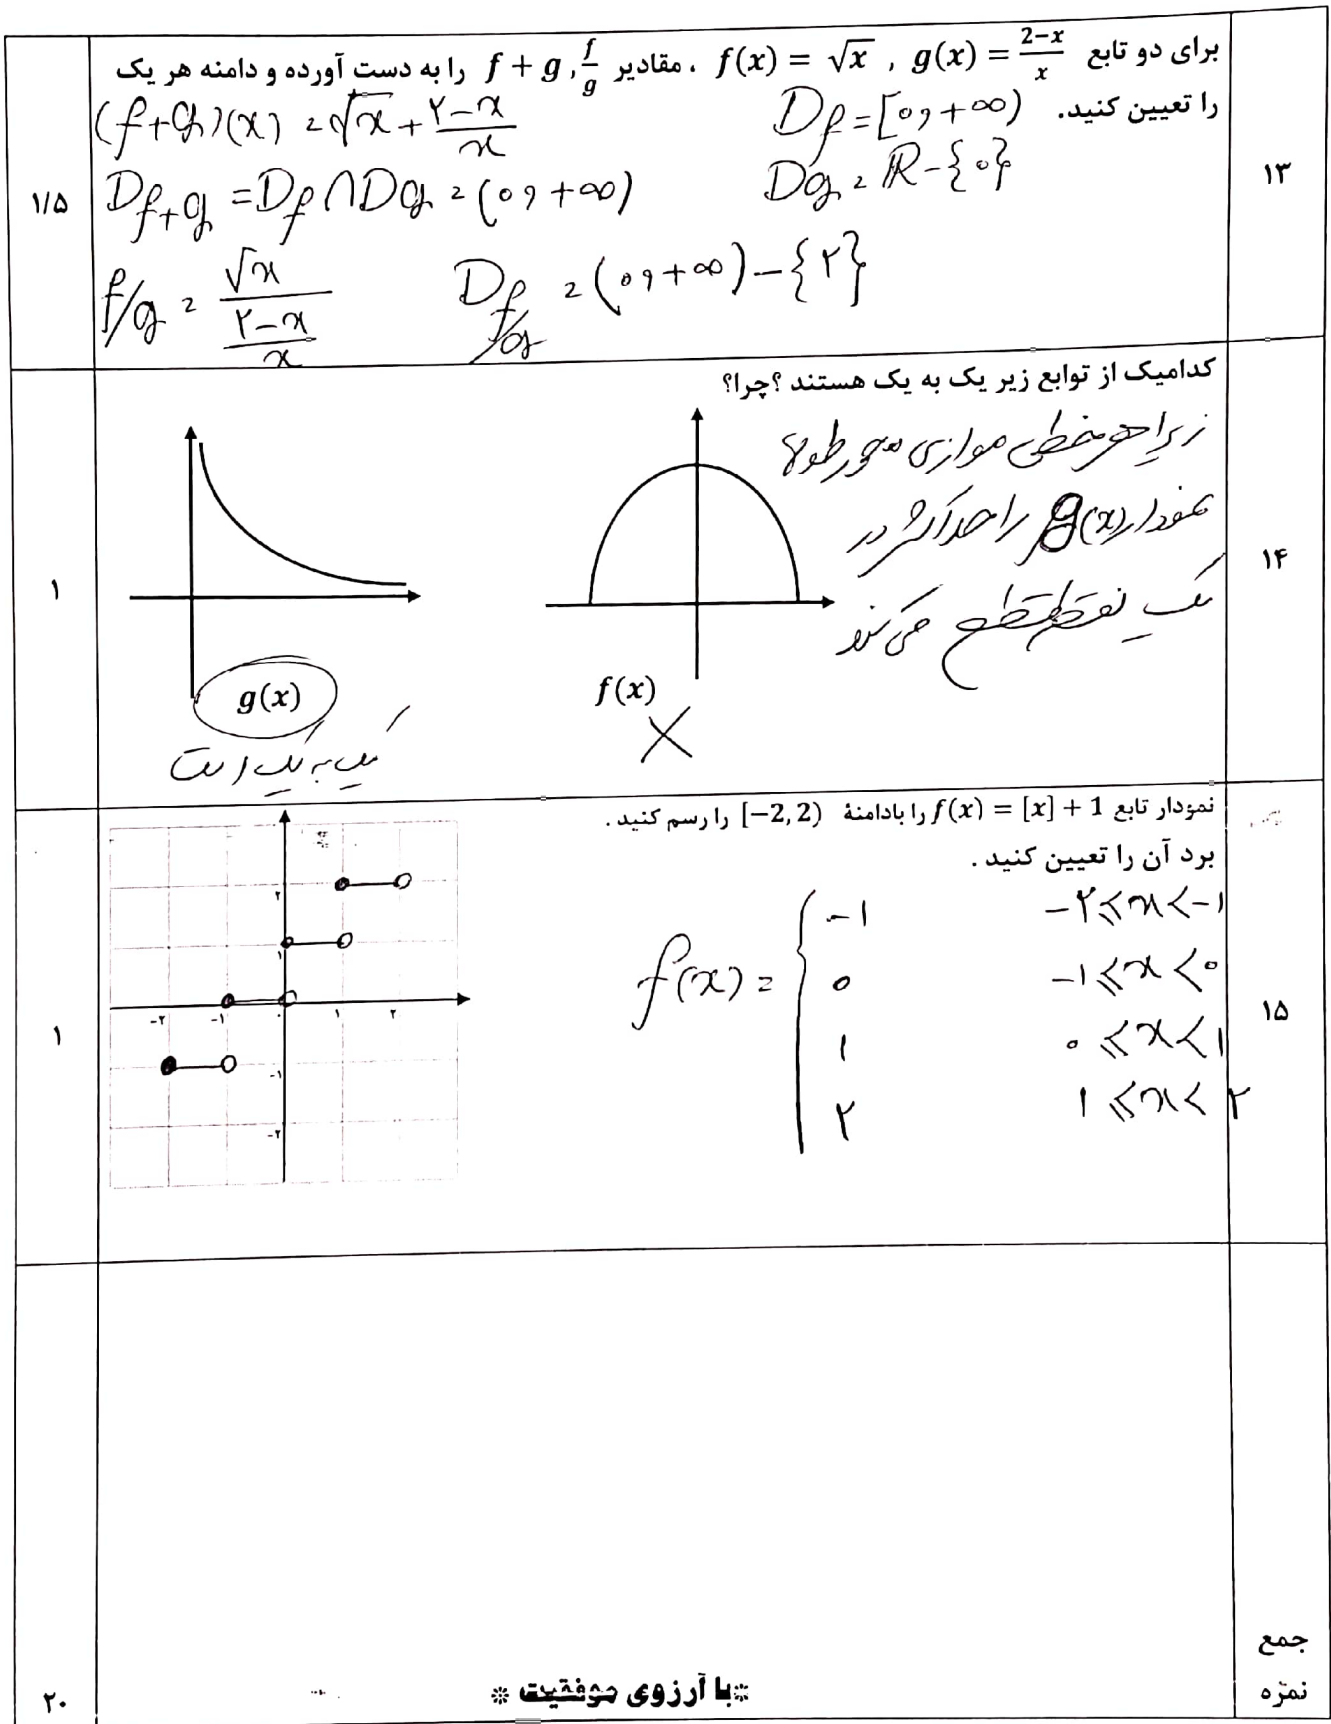 ۱۳
برای دو تابع f(x) = √x , g(x) = (2−x)/x ، مقادیر f + g , f/g را به دست آورده و دامنه هر یک
را تعیین کنید.
۱/۵
D_f = [۰, +∞)
(f+g)(x) = √x + (۲−x)/x
D_g = ℝ − {۰}
D_{f+g} = D_f ∩ D_g = (۰, +∞)
f/g = √x / ((۲−x)/x)
D_{f/g} = (۰, +∞) − {۲}
۱۴
کدامیک از توابع زیر یک به یک هستند ؟چرا؟
۱
زیرا هر خطی موازی محور طولها
نمودار g(x) را حداکثر در
یک نقطه قطع می‌کند
g(x)
f(x)
یک به یک است
۱۵
نمودار تابع f(x) = [x] + 1 را بادامنهٔ [−2, 2) را رسم کنید .
برد آن را تعیین کنید .
۱
f(x) =
−۱ −۲ ⩽ x < −۱
۰ −۱ ⩽ x < ۰
۱ ۰ ⩽ x < ۱
۲ ۱ ⩽ x < ۲
۲
۱
−۲ −۱ ۰ ۱ ۲
−۱
−۲
جمع
نمره
*با آرزوی موفقیت *
۲۰